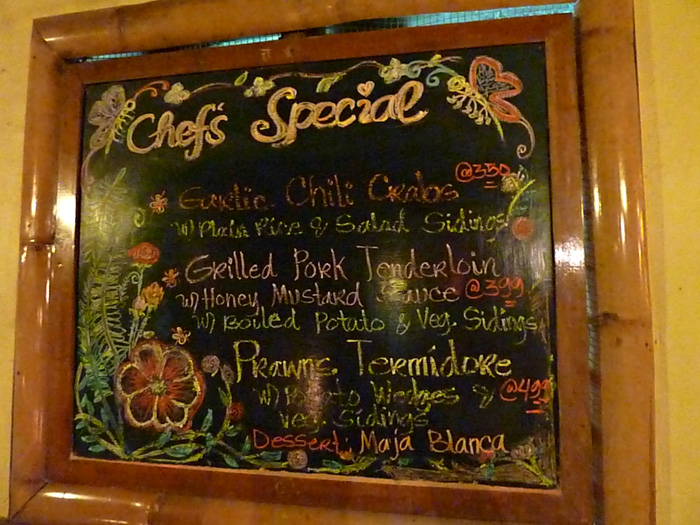 Chef's Special
@350
Garlic Chili Crabs
w/ Plain Rice & Salad Sidings
Grilled Pork Tenderloin
w/ Honey Mustard Sauce @399
w/ Boiled Potato & Veg. Sidings
Prawns Termidore
w/ Potato Wedges & @499
Veg. Sidings
Dessert: Maja Blanca